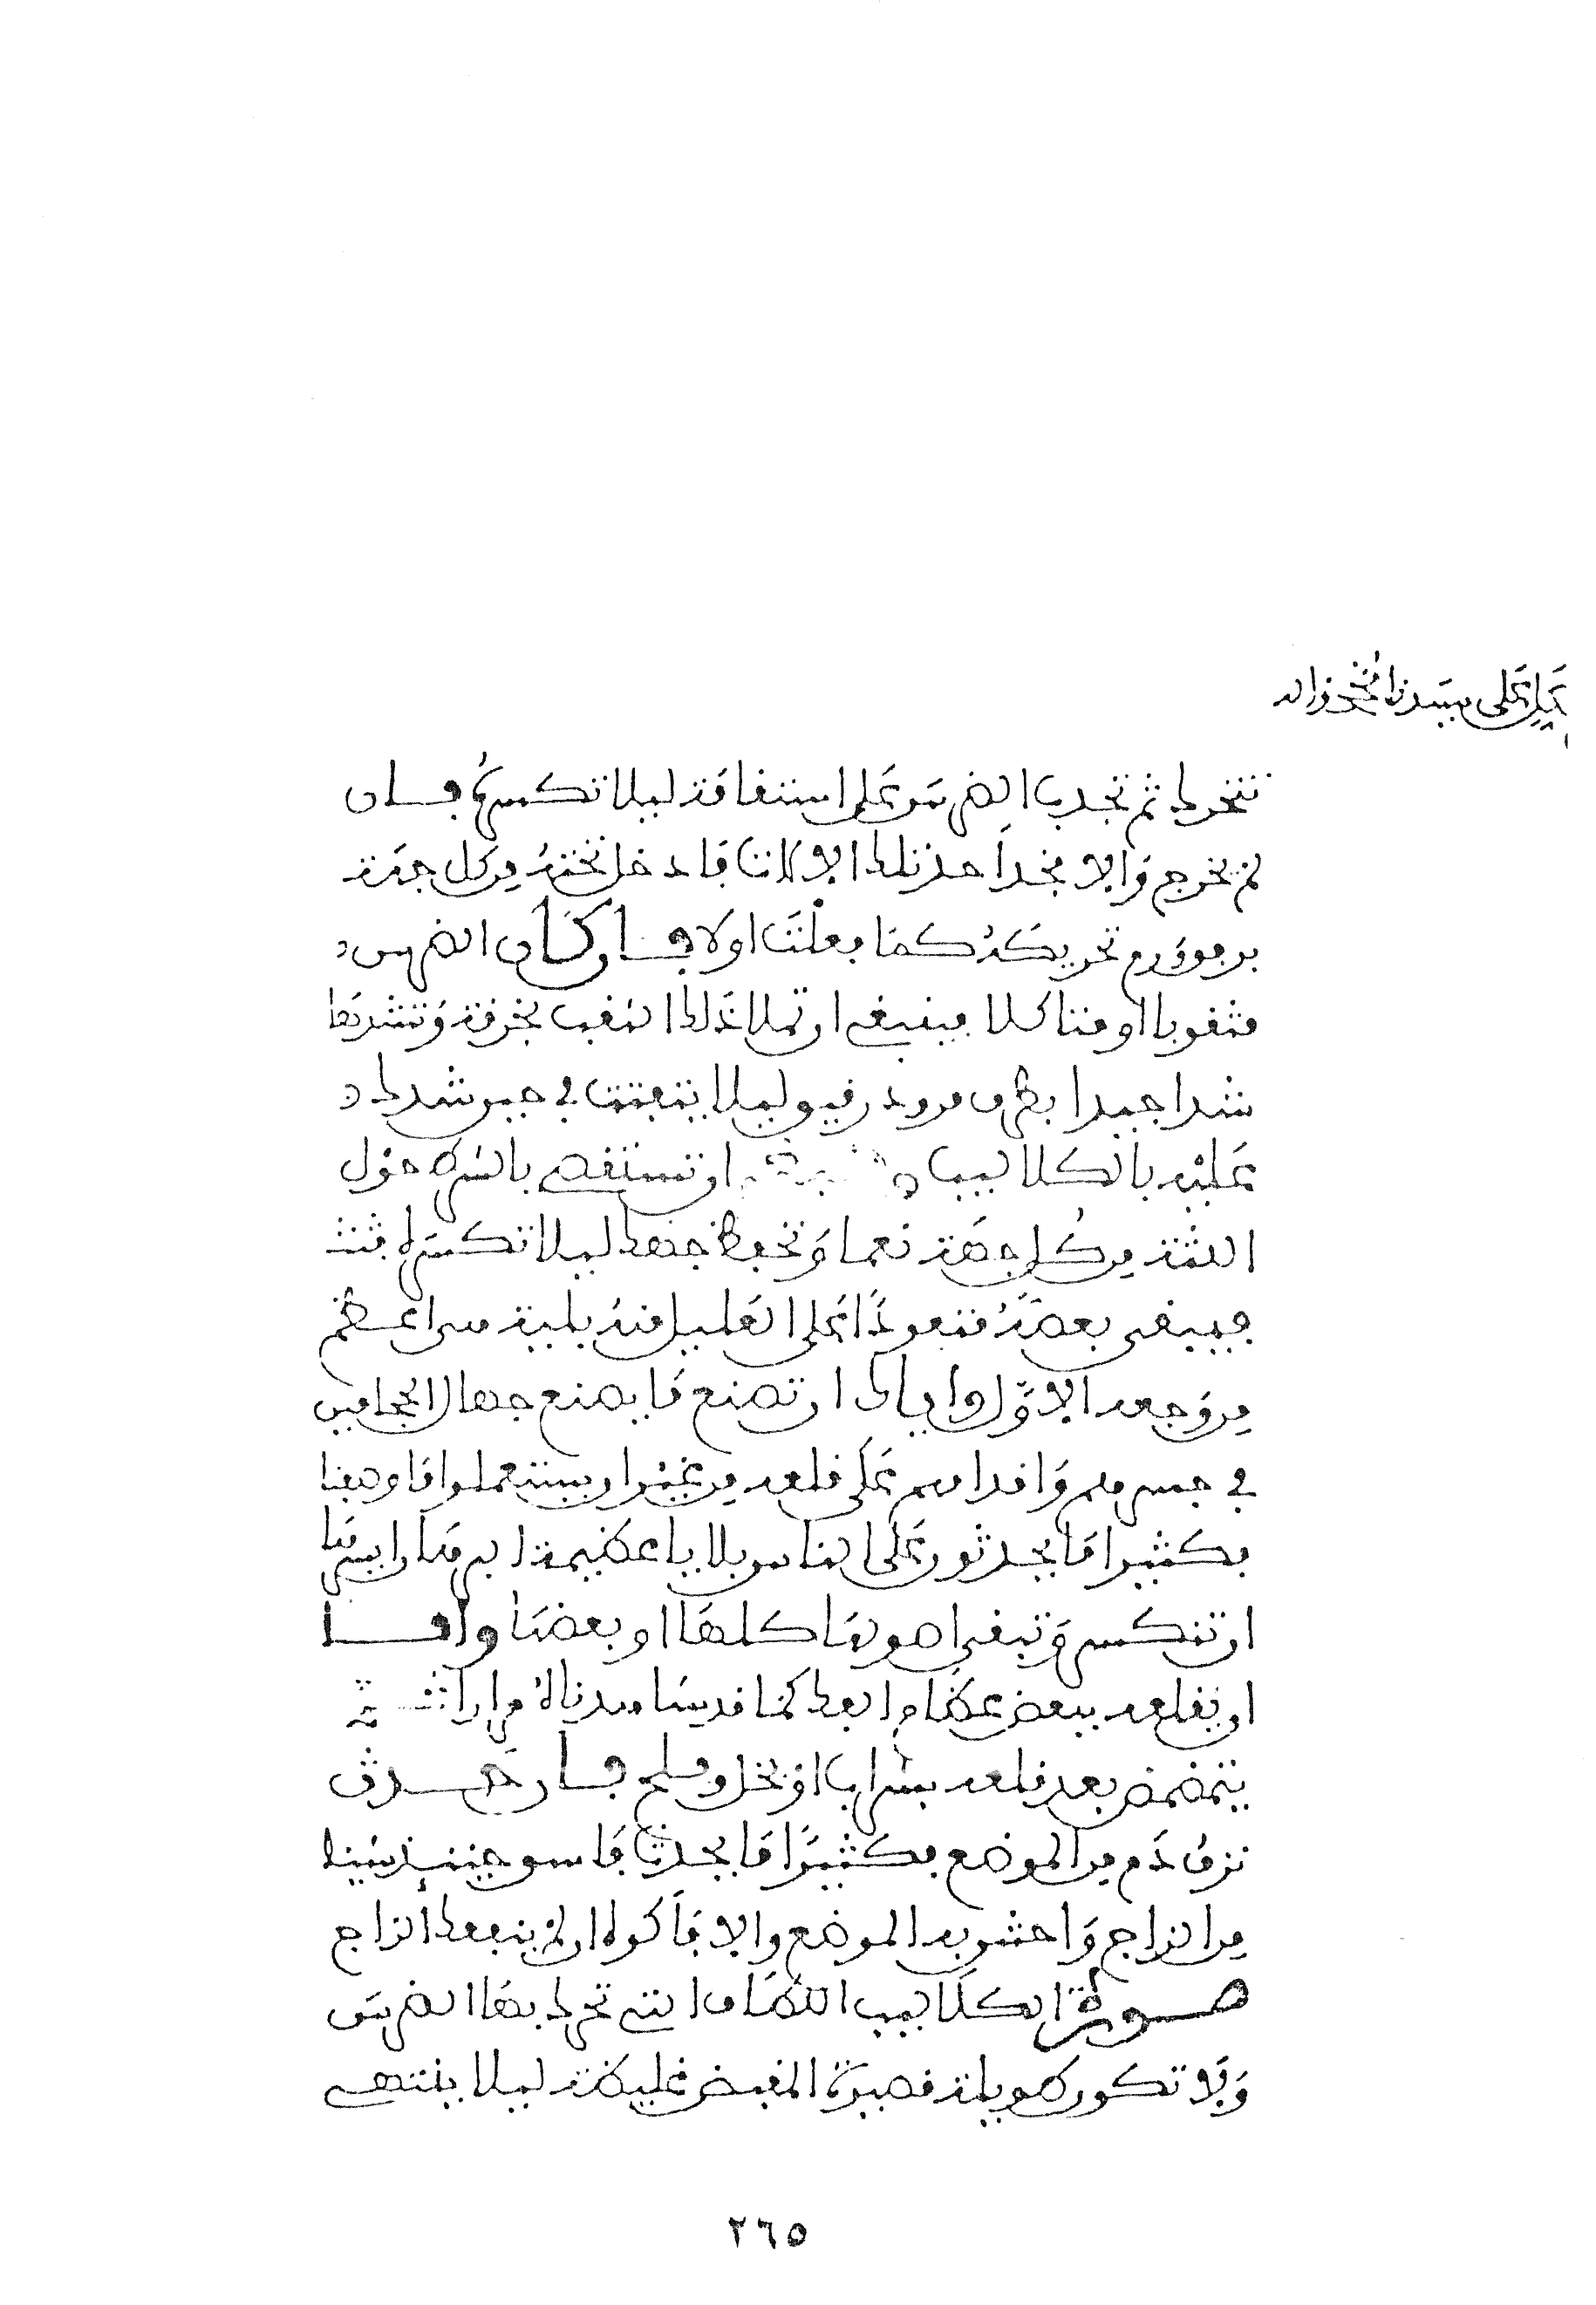 على سيدنا محمد واله
تتحرك ثم تجذب الضرس على استقامة ليلا تكسره فان
لم يخرج والا فخذ احد تلك الالات فادخل تحته من كل جهة
برفق ورم تحريكه كما فعلت اولا فان كان الضرس
مثقوبا او متاكلا فينبغي ان تملا ذلك الثقب بخرقة وتشدها
شدا جيدا بطرف مرود رقيق ليلا يتفتت في حين شدك
عليه بالكلاليب ان تستقصي بالشرط حول
اللثة من كل جهة نعما وتحفظ جهدك ليلا تكسره
فيبقى بعضه فتعود على العليل منه بلية هي اعظم
من وجعه الاول واياك ان تصنع ما يصنع جهال الحجامين
في جسرهم واقدامهم على قلعه من غير ان يستعملوا ما وصفنا
فكثيرا ما يحدثون على الناس بلايا عظيمة ايسرها
ان تنكسر وتبقى اصولها كلها او بعضها واما
ان يقلعه ببعض عظام الفك كما قد شاهدناه مرارا ثم
يتمضمض بعد قلعه بشراب او بخل وملح فان حدث
نزف دم من الموضع فكثيرا ما يحدث فاسحق حينيذ شيئا
من الزاج واحش به الموضع والا فاكوه ان لم ينفعك الزاج
صورة الكلاليب اللطاف التي تحرك بها الضرس
ولا تكون طويلة قصيرة المقبض غليظة ليلا ينثني
٢٦٥